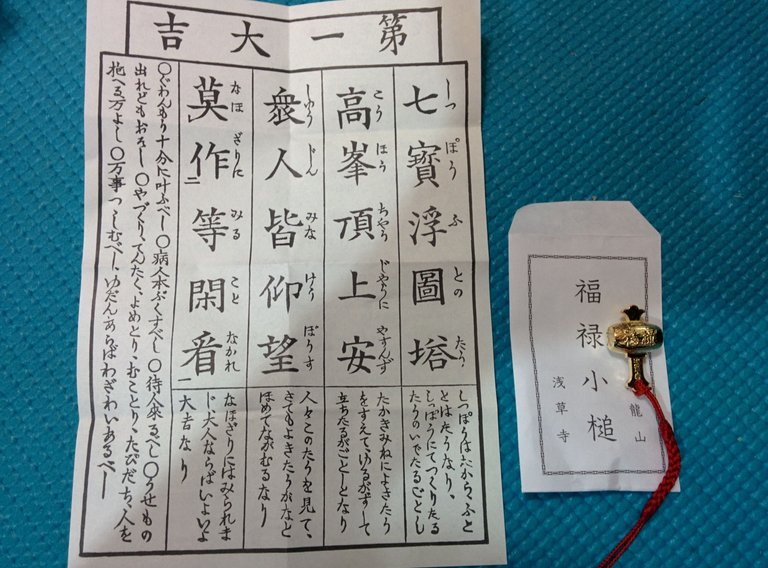 第一大吉
七寶浮圖塔
しつ ぽう ふ との たう
高峯頂上安
こう ほう ちやう じやうに やすんず
衆人皆仰望
しゆう じん みな げう ぼうす
莫作二等閑看一
なほ ざりに みる こと なかれ
しつぽうはたから、ふと
とはたうなり、
しつぽうにてつくりたる
たうのいでたるごとし
たかきみねによきたう
をすえて、
立ちたるがごとしとなり
人々このたうを見て、
さてもよきたうかなと
ほめてながむるなり
なほざりにはみられま
じ大人ならばいよいよ
大吉なり
〇ぐわんもう十分に叶ふべし〇病人本ぷくすべし〇待人來るべし〇うせもの
出れどもおそし〇やづくり、てんたく、よめとり、むことり、たびだち、人を
抱へる万よし〇万事つゝしむべし、ゆだんあらばわざわいあるべし
龍山
福禄小槌
浅草寺